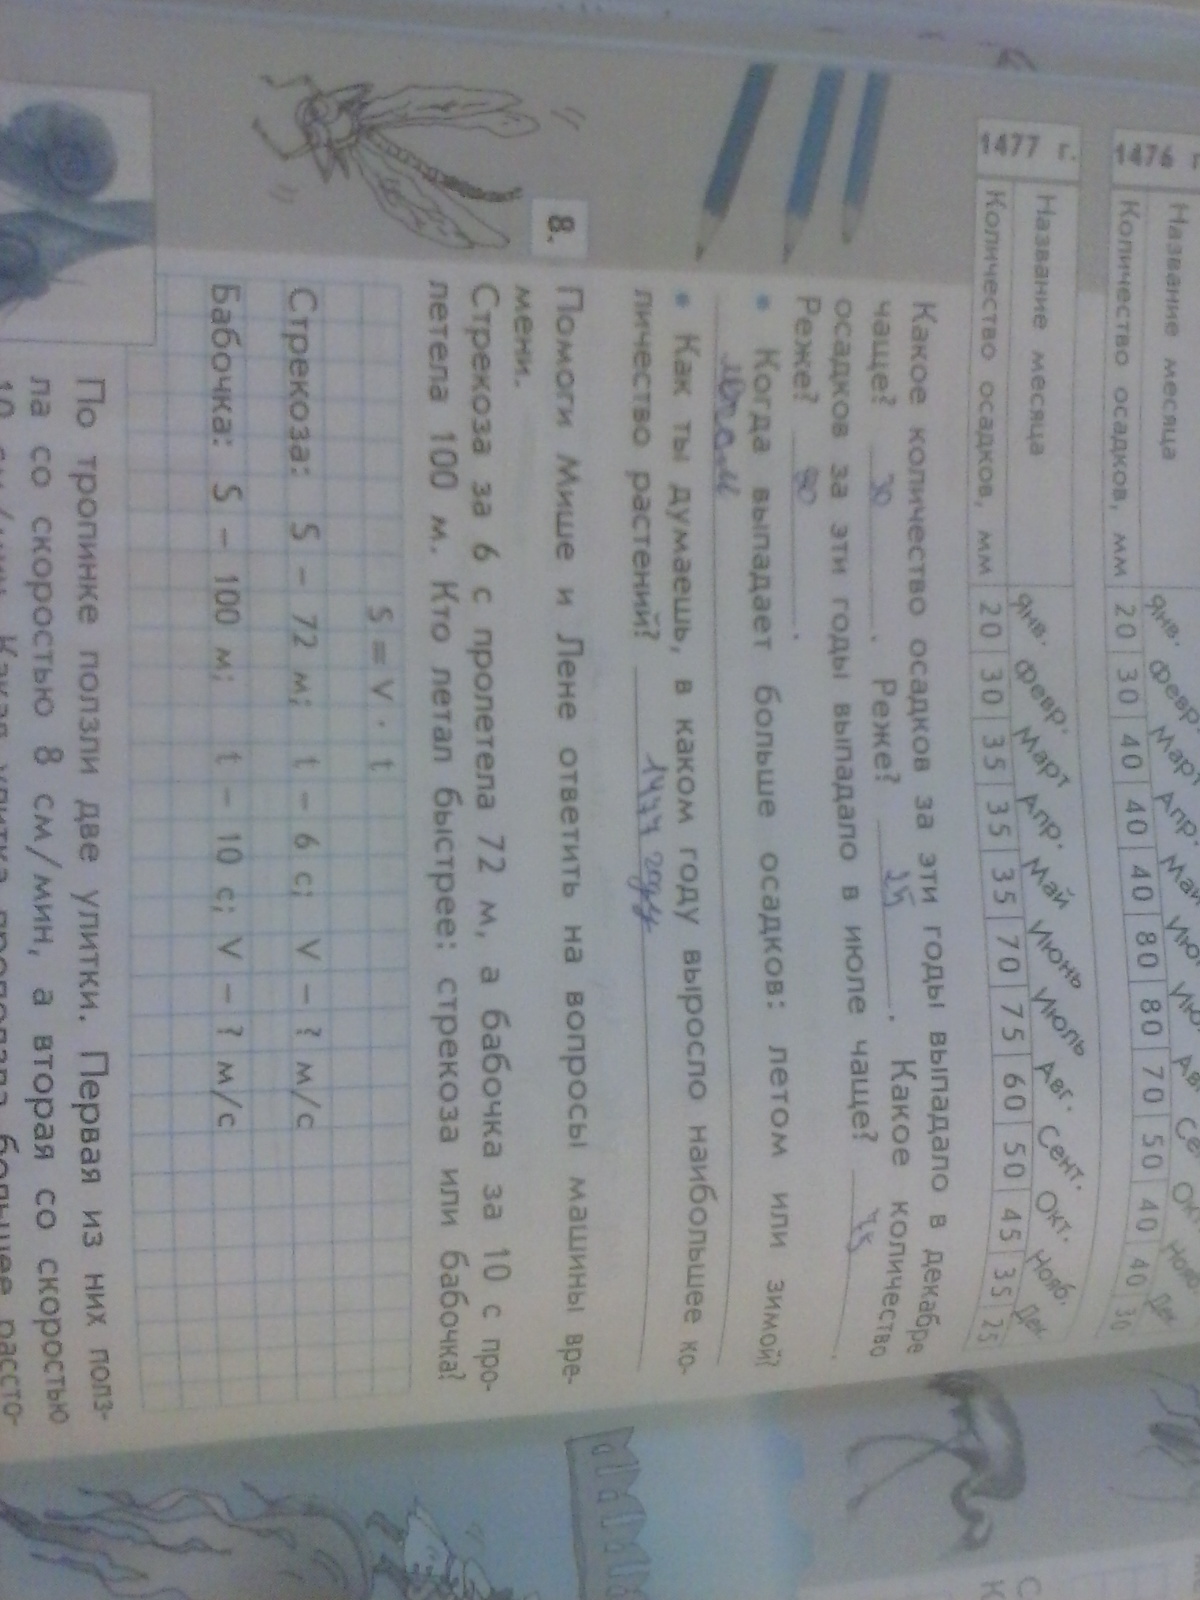 1476
Название месяца
янв. февр. Март Апр.
Количество осадков, мм 20 30 40 40 40 80 80 70 50 40 40 30
1477 г.
Название месяца
янв. февр. Март Апр. Май Июнь Июль Авг. Сент. Окт. Нояб. Дек
Количество осадков, мм 20 30 35 35 35 70 75 60 50 45 35 25
Какое количество осадков за эти годы выпадало в декабре
чаще? 30. Реже? 25. Какое количество
осадков за эти годы выпадало в июле чаще? 75.
Реже? 80.
• Когда выпадает больше осадков: летом или зимой?
• Как ты думаешь, в каком году выросло наибольшее ко-
личество растений? 1477 году
8. Помоги Мише и Лене ответить на вопросы машины вре-
мени.
Стрекоза за 6 с пролетела 72 м, а бабочка за 10 с про-
летела 100 м. Кто летал быстрее: стрекоза или бабочка?
S = V · t
Стрекоза: S – 72 м; t – 6 с; V – ? м/с
Бабочка: S – 100 м; t – 10 с; V – ? м/с
По тропинке ползли две улитки. Первая из них полз-
ла со скоростью 8 см/мин, а вторая со скоростью